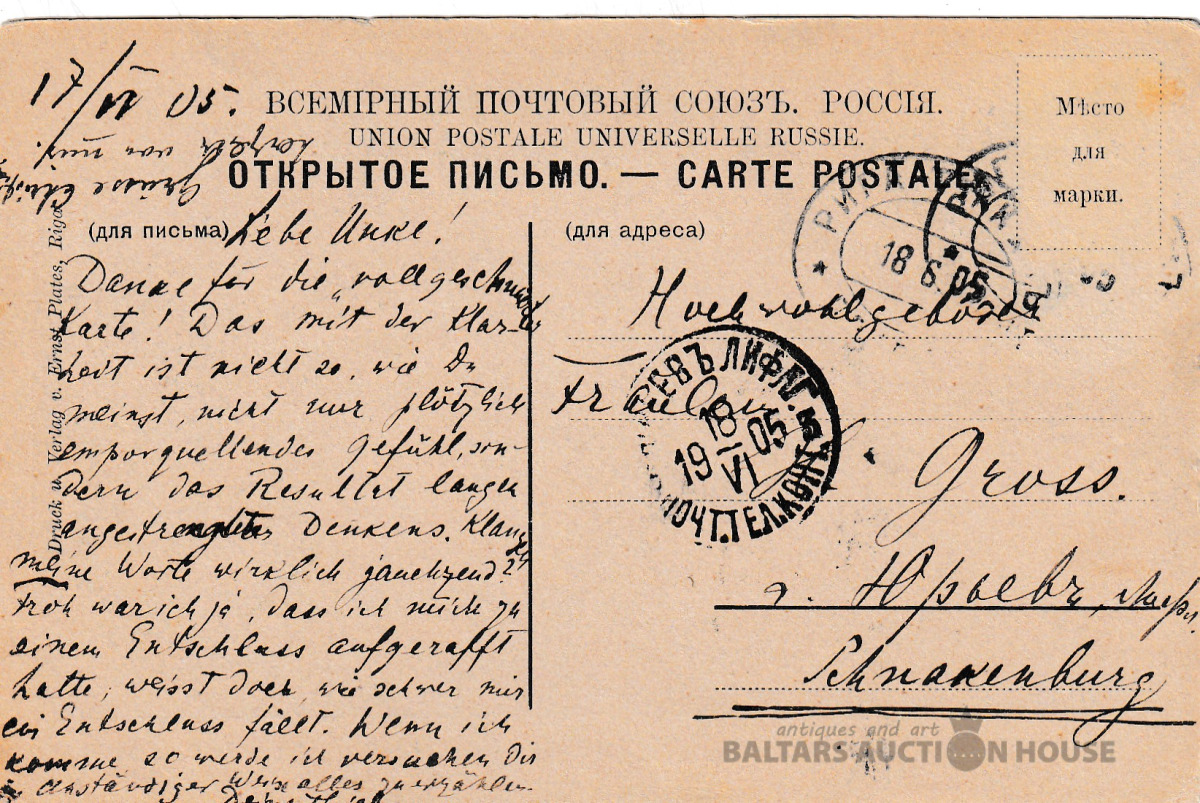 17/VI 05.
ВСЕМІРНЫЙ ПОЧТОВЫЙ СОЮЗЪ. РОССІЯ.
UNION POSTALE UNIVERSELLE RUSSIE.
ОТКРЫТОЕ ПИСЬМО. — CARTE POSTALE.
Мѣсто
для
марки.
Grüsse
herzlich von mir.
Druck u. Verlag v. Ernst Plates, Riga.
(для письма)
Liebe Unke!
Danke für die vollgeschmierte
Karte! Das mit der Klar-
heit ist nicht so, wie Du
meinst, nicht nur plötzlich
emporquellendes Gefühl, son-
dern das Resultat langen
angestrengten Denkens. Klangen
meine Worte wirklich jauchzend?
Froh war ich ja, dass ich mich zu
einem Entschluss aufgerafft
hatte, weisst doch, wie schwer mir
ein Entschluss fällt. Wenn ich
komme so werde ich versuchen Dir
anständiger Weise alles zu erzählen.
(для адреса)
Hochwohlgeboren
Fräulein
Gross.
г. Юрьевъ, Лифл.
Schnakenburg
РИГА
18 6 05
ЮРЬЕВЪ ЛИФЛ. Г.
18
VI
1905
ПОЧТ. ТЕЛ. КОНТ.
antiques and art
BALTARS AUCTION HOUSE